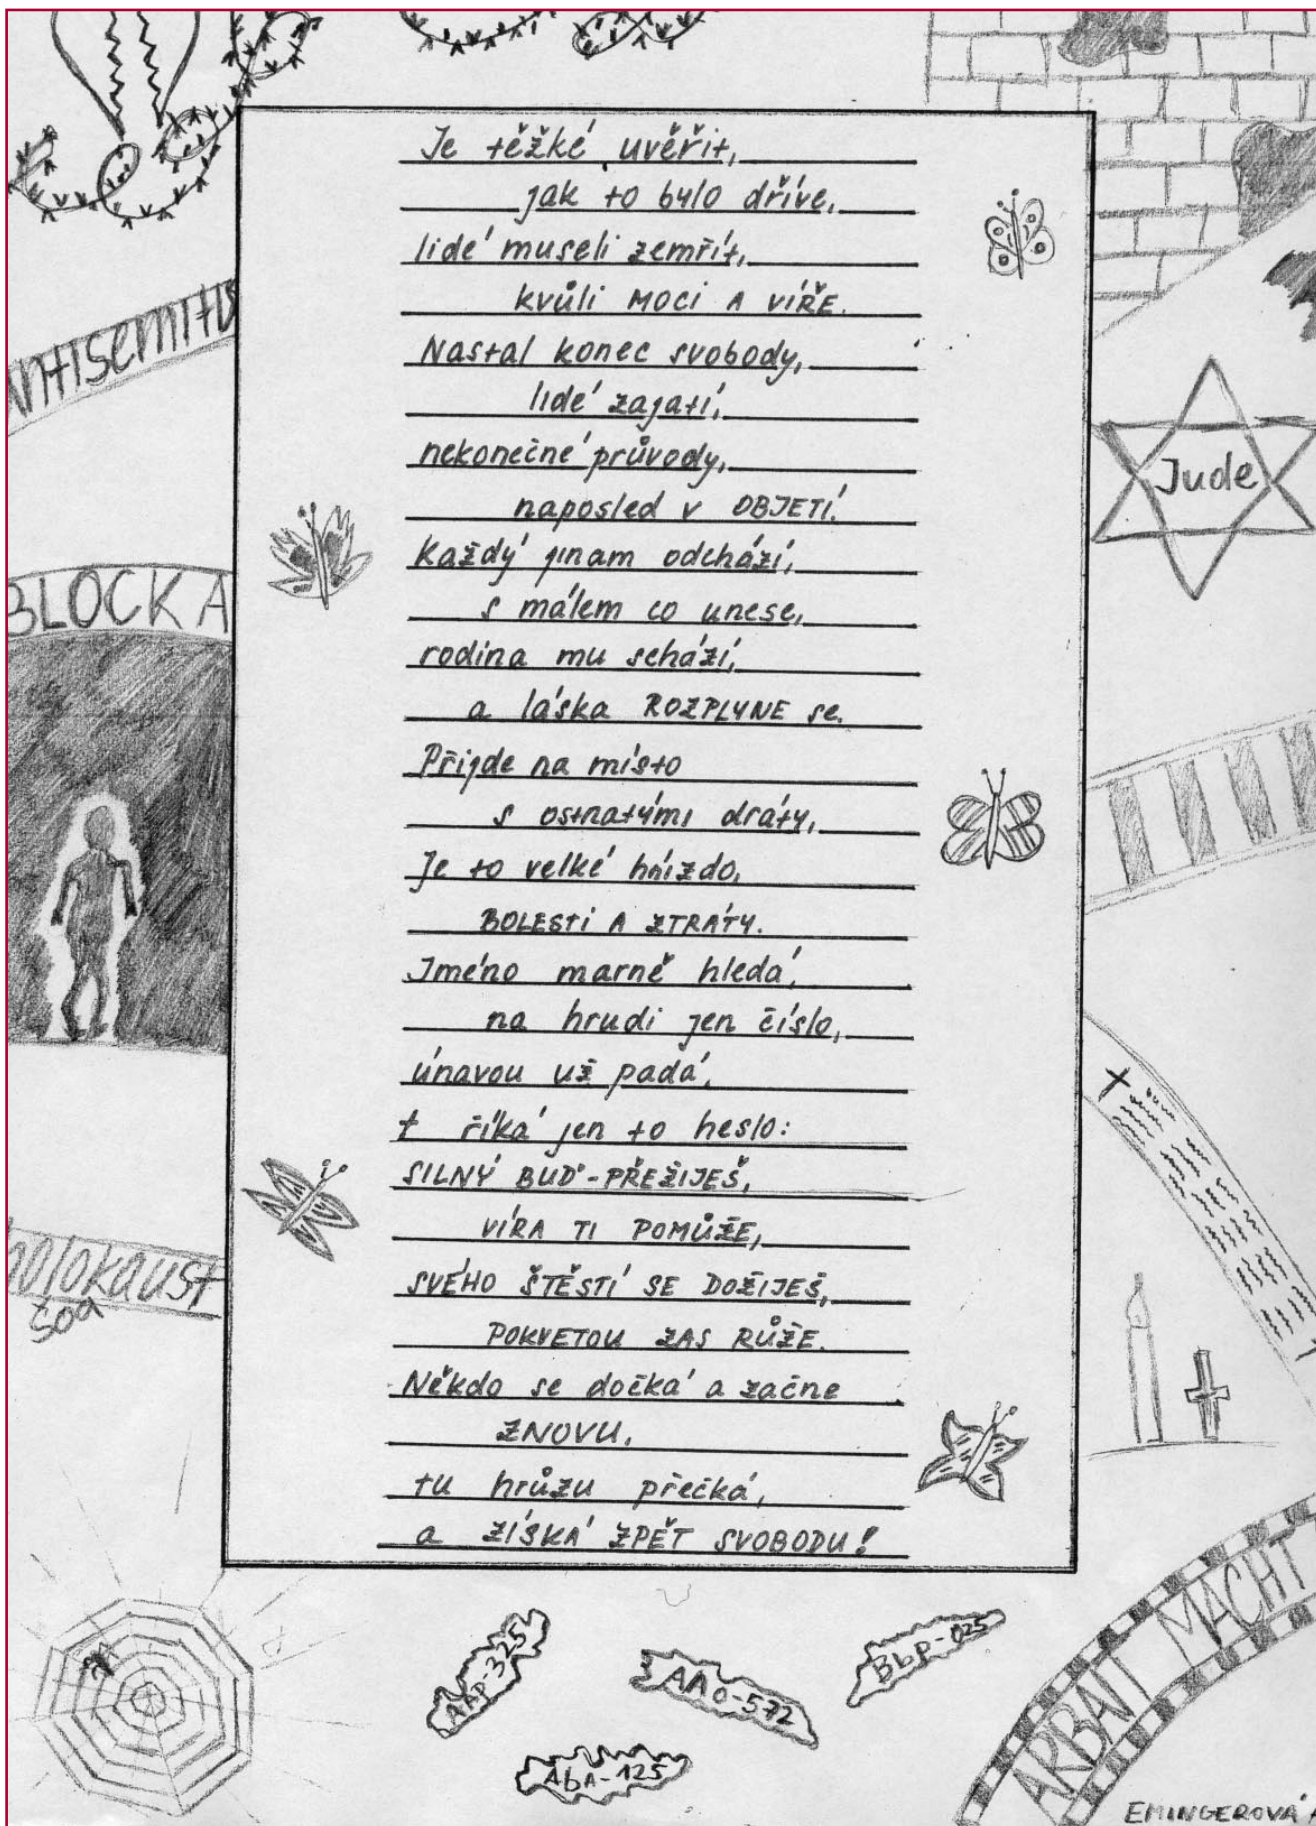 Je těžké uvěřit,
jak to bylo dříve,
lidé museli zemřít,
kvůli MOCI A VÍŘE.
Nastal konec svobody,
lidé zajatí,
nekonečné průvody,
naposled v OBJETÍ.
Každý jinam odchází,
s málem co unese,
rodina mu schází,
a láska ROZPLYNE se.
Přijde na místo
s ostnatými dráty,
Je to velké hnízdo,
BOLESTI A ZTRÁTY.
Jméno marně hledá,
na hrudi jen číslo,
únavou už padá,
t říká jen to heslo:
SILNÝ BUĎ-PŘEŽIJEŠ,
VÍRA TI POMŮŽE,
SVÉHO ŠTĚSTÍ SE DOŽIJEŠ,
POKVETOU ZAS RŮŽE.
Někdo se dočká a začne
ZNOVU,
tu hrůzu přečká,
a ZÍSKÁ ZPĚT SVOBODU!
ntisemitis
Jude
BLOCK A
holokaust
šoa
AAP-325
AAO-572
Bbp-025
AbA-125
ARBAIT MACHT
EMINGEROVÁ